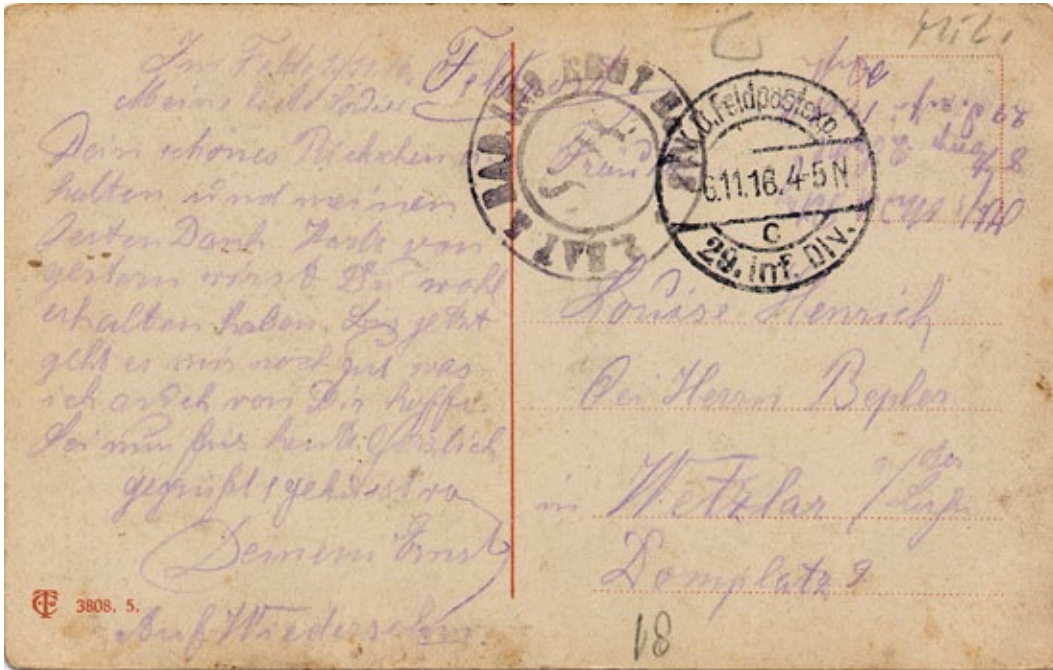 Im Felde
Meine liebe
Feldpost
Dein schönes Päckchen er
halten und meinen
besten Dank. Karte von
gestern wirst Du wohl
erhalten haben. Bis jetzt
geht es mir noch gut was
ich auch von Dir hoffe.
Sei nun fürs heute herzlich
gegrüßt & geküsst von
Deinem Ernst
Auf Wiedersehn.
3808. 5.
K.D.Feldpostexp.
6.11.16.4-5N
c
29. Inf. DIV.
2. BAT.
Louise Henrich
bei Herrn Bepler
in Wetzlar a/der
Lahn
Domplatz 9
18